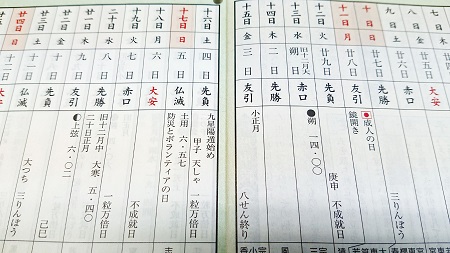 八日 金 廿五日 大安
九日 土 廿六日 赤口 三りんぼう
十日 日 廿七日 先勝
十一日 月 廿八日 友引 成人の日
鏡開き
十二日 火 廿九日 先負 庚申 不成就日
十三日 水 旧十二月大 朔日 赤口 朔 一四・〇〇
十四日 木 二日 先勝
十五日 金 三日 友引 小正月 八せん終り
十六日 土 四日 先負 九星陽遁始め
甲子 天しゃ 一粒万倍日
十七日 日 五日 仏滅 土用 六・五七
防災とボランティアの日
十八日 月 六日 大安
十九日 火 七日 赤口 不成就日
二十日 水 八日 先勝 旧十二月中 大寒 五・四〇
二十日正月 一粒万倍日
廿一日 木 九日 友引 上弦 六・〇二 己巳
廿二日 金 十日 先負 大つち 三りんぼう
廿三日 土 十一日 仏滅
廿四日 日 十二日 大安